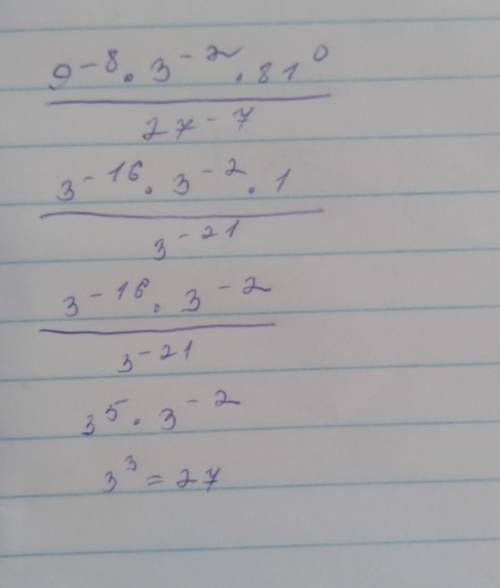 9⁻⁸ · 3⁻² · 81⁰
27⁻⁷
3⁻¹⁶ · 3⁻² · 1
3⁻²¹
3⁻¹⁶ · 3⁻²
3⁻²¹
3⁵ · 3⁻²
3³ = 27